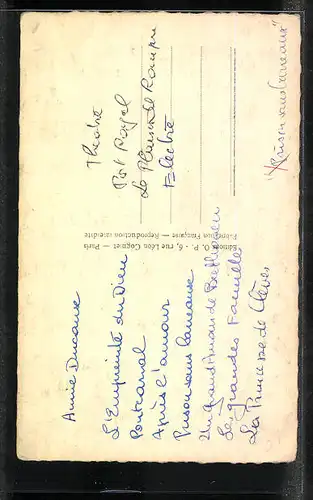 Annie Ducaux
L'Empreinte du Dieu
Pontcarral
Après l'amour
Prison sans barreaux
Un grand Amour de Beethoven
Les grandes Familles
La Princesse de Clèves
Editions O. P. - 6, rue Léon Cogniet - Paris
Fabrication Française — Reproduction interdite
Théatre
Port Royal
Electre
"Prison sans barreaux"